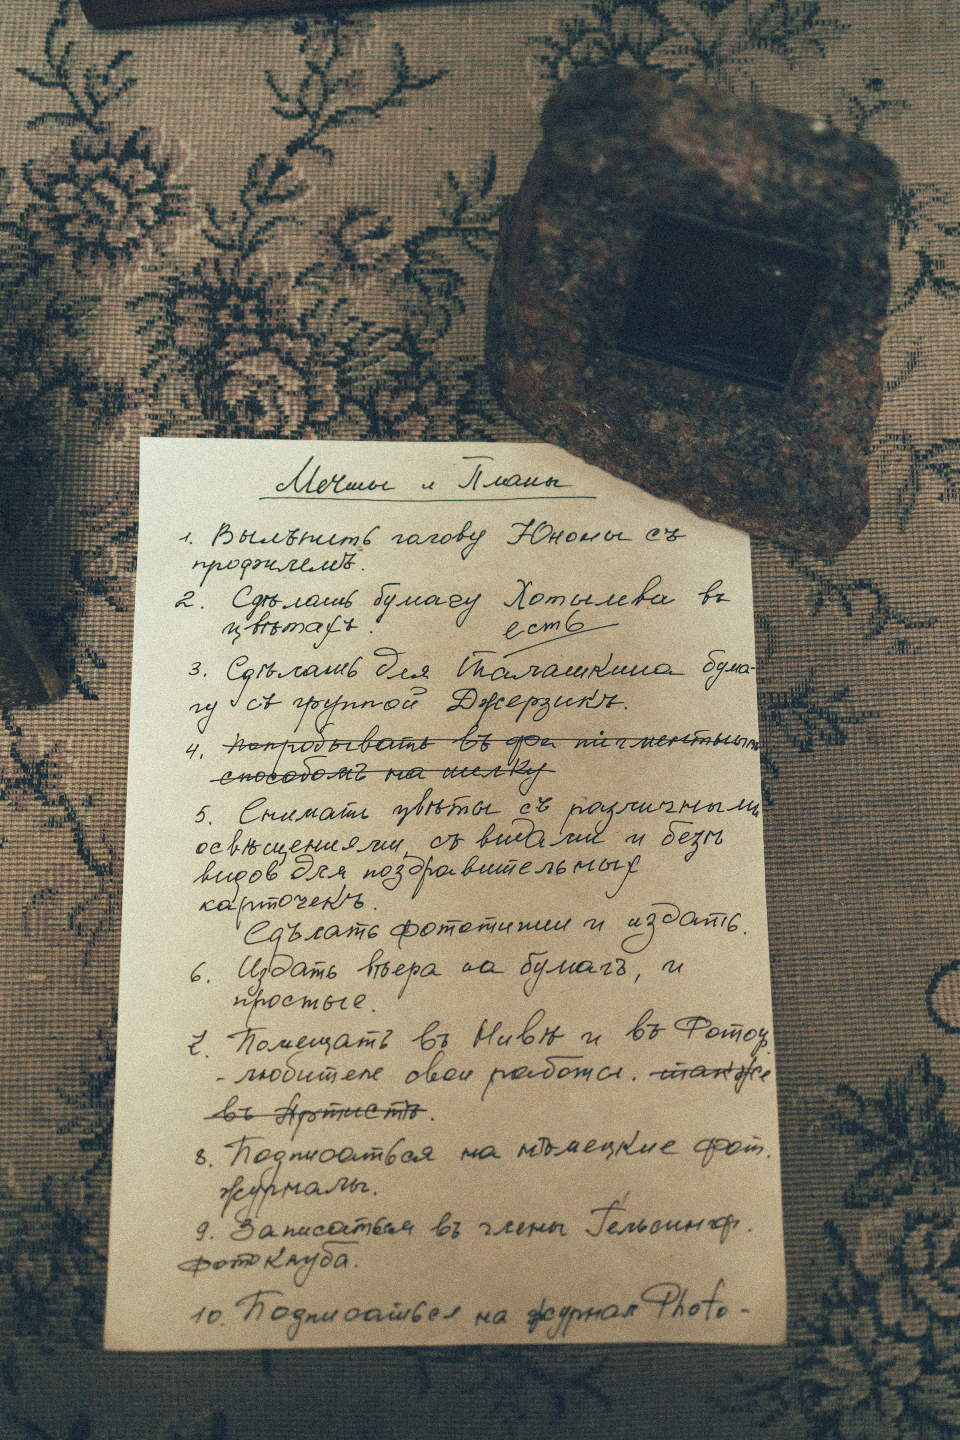 Мечты и Планы
1. Вылѣпить голову Юноны съ
профилемъ.
2. Сдѣлать бумагу Хотылева въ
цвѣтахъ. есть
3. Сдѣлать для Талашкина бума-
гу съ группой
4. Попробывать въ пигментным
способомъ на шелку
5. Снимать цвѣты съ различными
освѣщениями, съ видами и безъ
видов для поздравительныхъ
карточекъ.
Сдѣлать фототипии и издать.
6. Издать вѣера на бумагѣ, и
простые.
7. Помещать въ Нивѣ и въ Фотогр.
-любителе свои работы. также
въ Артистѣ.
8. Подписаться на нѣмецкие фот.
журналы.
9. Записаться въ члены Гельсингф.
фотоклуба.
10. Подписаться на журнал Photo-